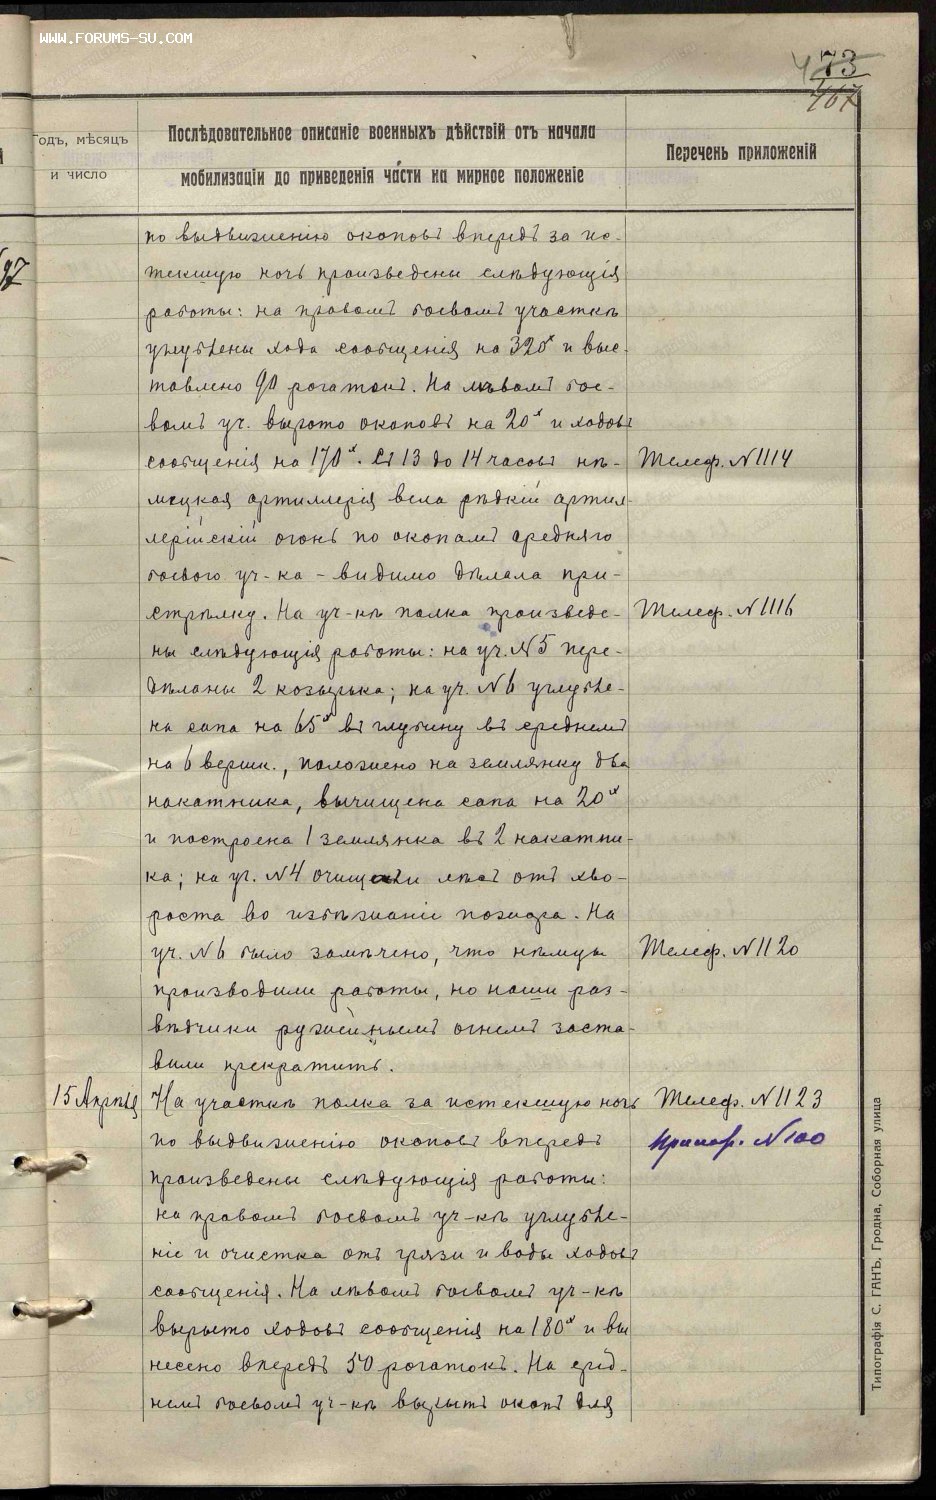 WWW.FORUMS-SU.COM
73
467
Годъ, мѣсяцъ
и число
Послѣдовательное описаніе военныхъ дѣйствій отъ начала
мобилизаціи до приведенія части на мирное положеніе
Перечень приложеній
по выдвиженію окоповъ впередъ за ис-
текшую ночь произведены слѣдующія
работы: на правомъ боевомъ участкѣ
углублены хода сообщенія на 320х и выс-
тавлено 90 рогатокъ. На лѣвомъ бое-
вомъ уч. вырыто окоповъ на 20х и ходовъ
сообщенія на 170х. Съ 13 до 14 часовъ нѣ-
Телеф. № 1114
мецкая артиллерія вела рѣдкій артил-
лерійскій огонь по окопамъ средняго
боевого уч-ка – видимо дѣлала при-
стрѣлку. На уч-кѣ полка произведе-
Телеф. № 1116
ны слѣдующія работы: на уч. №5 пере-
дѣланы 2 козырька; на уч. №6 углубле-
на сапа на 65х въ глубину въ среднемъ
на 6 вершк., положено на землянку два
накатника, вычищена сапа на 20х
и построена 1 землянка въ 2 накатни-
ка; на уч. №4 очищенъ лѣсъ отъ хво-
роста во избѣжаніи пожара. На
уч. №6 было замѣчено, что нѣмцы
Телеф. № 1120
производили работы, но наши раз-
вѣдчики ружейнымъ огнемъ заста-
вили прекратить.
15 Апрѣля
На участкѣ полка за истекшую ночь
Телеф. № 1123
по выдвиженію окоповъ впередъ
№ 100
произведены слѣдующія работы:
на правомъ боевомъ уч-кѣ углубле-
ніе и очистка отъ грязи и воды ходовъ
сообщенія. На лѣвомъ боевомъ уч-кѣ
вырыто ходовъ сообщенія на 180х и вы
несено впередъ 50 рогатокъ. На сред-
немъ боевомъ уч-кѣ вырытъ окопъ для
Типографія С. ГАНЪ, Гродна, Соборная улица